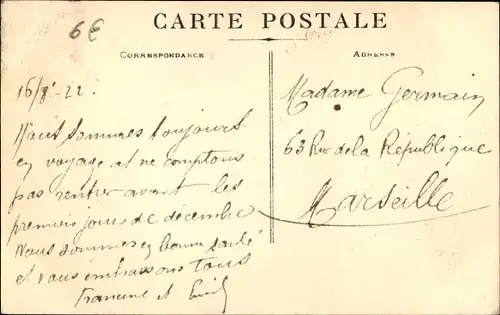 6€
CARTE POSTALE
CORRESPONDANCE
ADRESSE
Nous sommes toujours
en voyage et ne comptons
pas rentrer avant les
premiers jours de décembre
Nous sommes en bonne santé
et vous embrassons tous
Francine et
Madame Germain
63 Rue de la République
Marseille